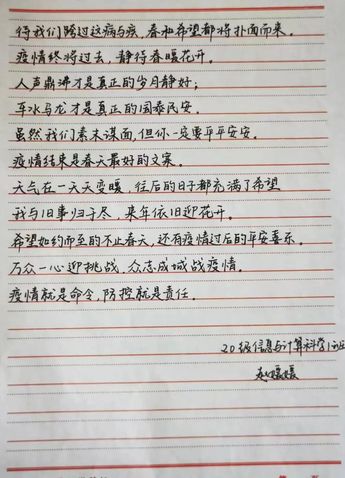 待我们跨过这病与疾，春和希望都将扑面而来。
疫情终将过去，静待春暖花开。
人声鼎沸才是真正的岁月静好；
车水马龙才是真正的国泰民安。
虽然我们素未谋面，但你一定要平平安安。
疫情结束是春天最好的文案。
天气在一天天变暖，往后的日子都充满了希望
我与旧事归于尽，来年依旧迎花开。
希望如约而至的不止春天，还有疫情过后的平安喜乐。
万众一心迎挑战，众志成城战疫情。
疫情就是命令，防控就是责任。
20级信息与计算科学1班
赵媛媛